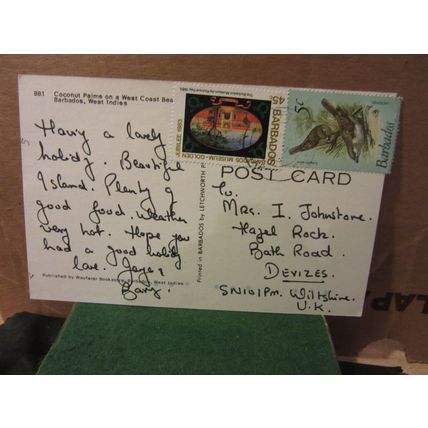 BB1 Coconut Palms on a West Coast Bea
Barbados, West Indies
Having a lovely
holiday. Beautiful
Island. Plenty of
good food. Weather
very hot. Hope you
had a good holiday
love. Joyce &
Gary.
Published by Wayfarer Bookstore, Barbados, West Indies
Printed in BARBADOS by LETCHWORTH P
45c BARBADOS
BARBADOS MUSEUM-GOLDEN JUBILEE 1983
5c
Barbados
POST CARD
To.
Mrs. I. Johnstone.
Hazel Rock.
Bath Road.
DEVIZES.
SN10 1PM. Wiltshire.
U.K.
LAP